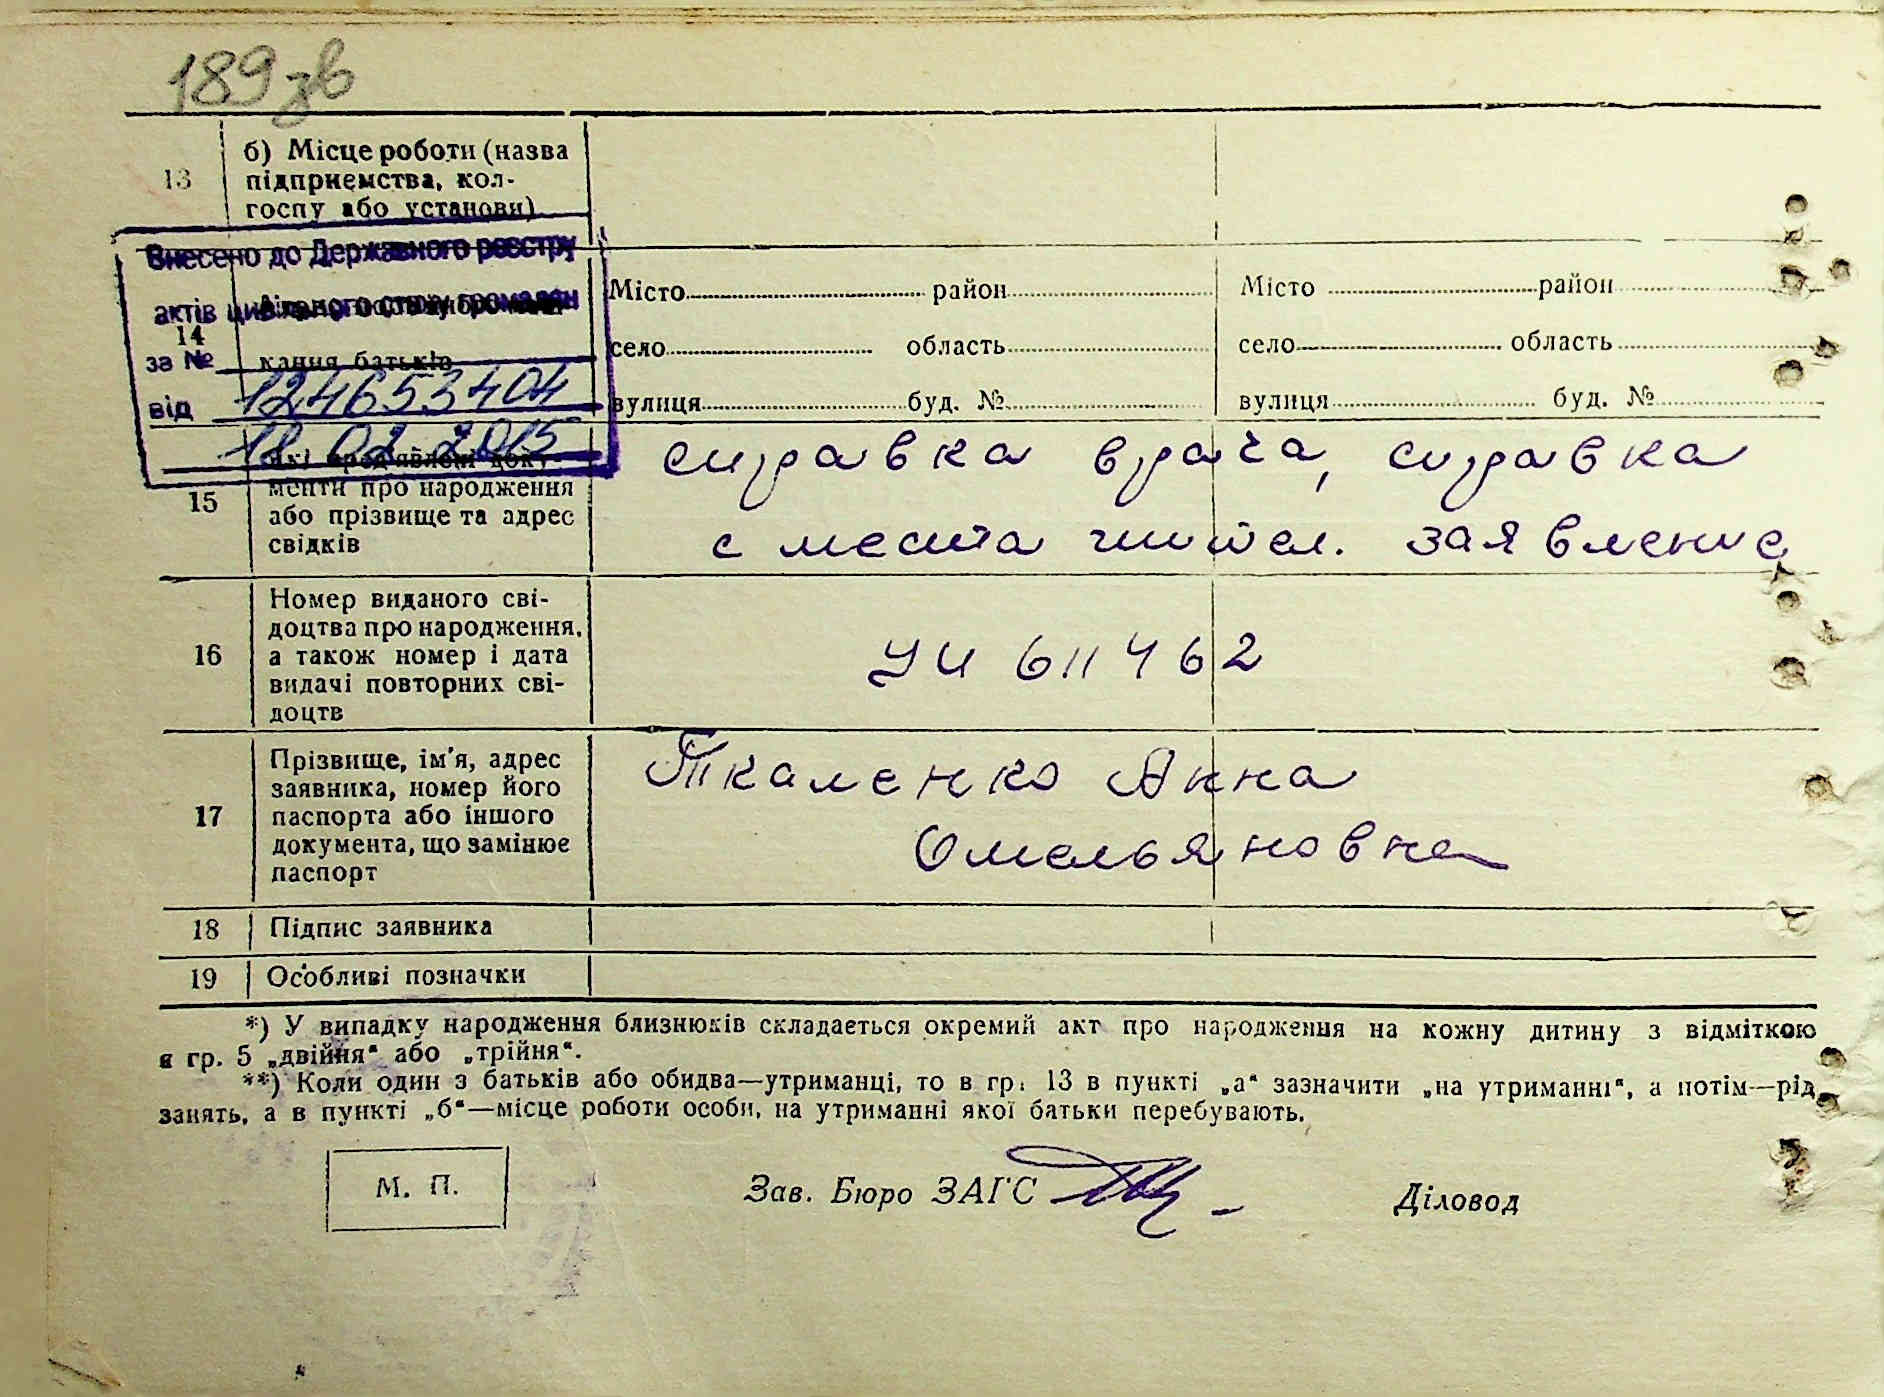 189 зв
13
б) Місце роботи (назва
підприємства, кол-
госпу або установи)
Внесено до Державного реєстру
актів цивільного стану громадян
за №
124653404
від
18.02.2015
14
кання батьків
Місто район
село область
вулиця буд. №
Місто район
село область
вулиця буд. №
15
які пред'явлені доку-
менти про народження
або прізвище та адрес
свідків
справка врача, справка
с места жител. заявление
16
Номер виданого сві-
доцтва про народження,
а також номер і дата
видачі повторних сві-
доцтв
УИ 611462
17
Прізвище, ім'я, адрес
заявника, номер його
паспорта або іншого
документа, що замінює
паспорт
Ткаленко Анна
Омельяновна
18 Підпис заявника
19 Особливі позначки
*) У випадку народження близнюків складається окремий акт про народження на кожну дитину з відміткою
в гр. 5 „двійня“ або „трійня“.
**) Коли один з батьків або обидва—утриманці, то в гр. 13 в пункті „а“ зазначити „на утриманні“, а потім—рід
занять, а в пункті „б“—місце роботи особи, на утриманні якої батьки перебувають.
М. П.
Зав. Бюро ЗАГС
Діловод